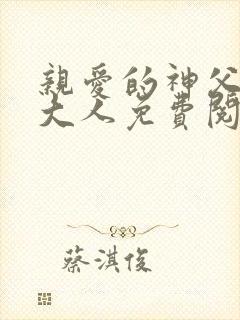 親愛的神父
大人免費閱
蔡淇俊